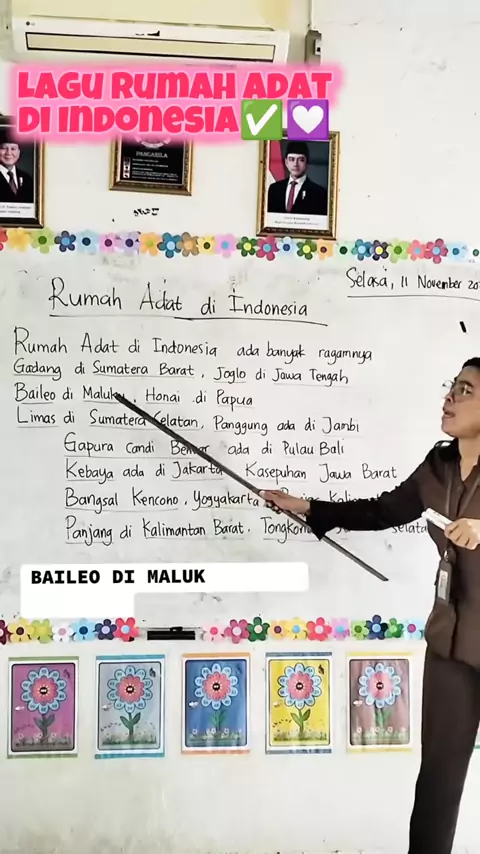 LAGU RUMAH ADAT
DI INDONESIA✅💜
PANCASILA
Selasa, 11 November 20
Rumah Adat di Indonesia
Rumah Adat di Indonesia ada banyak ragamnya
Gadang di Sumatera Barat, Joglo di Jawa Tengah
Baileo di Maluku, Honai di Papua
Limas di Sumatera Selatan, Panggung ada di Jambi
Gapura Candi Bentar ada di Pulau Bali
Kebaya ada di Jakarta Kasepuhan Jawa Barat
Bangsal Kencono, Yogyakarta
Panjang di Kalimantan Barat, Tongkonan selata
BAILEO DI MALUK